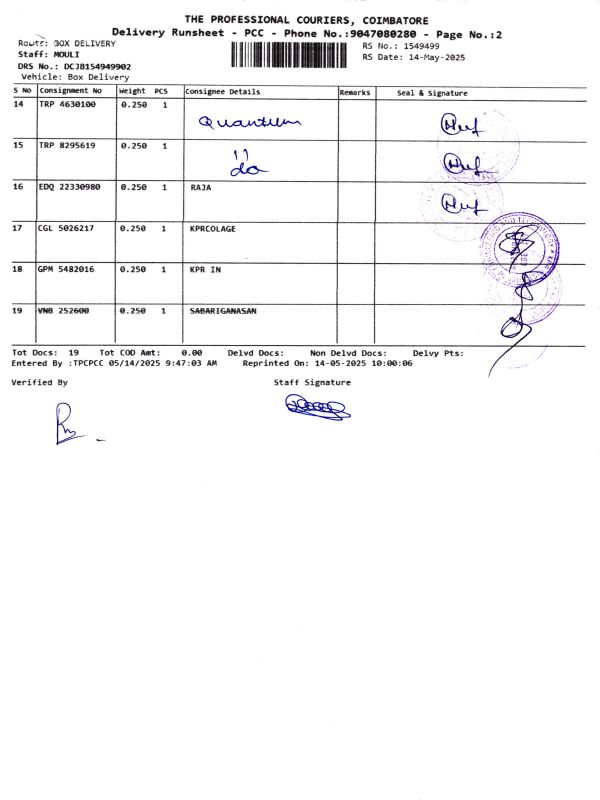 THE PROFESSIONAL COURIERS, COIMBATORE
Delivery Runsheet - PCC - Phone No.:9047080280 - Page No.:2
Route: BOX DELIVERY
Staff: MOULI
DRS No.: DCJB154949902
Vehicle: Box Delivery
RS No.: 1549499
RS Date: 14-May-2025
S No Consignment No Weight PCS Consignee Details Remarks Seal & Signature
14 TRP 4630100 0.250 1 Quantum
15 TRP 8295619 0.250 1 do
16 EDQ 22330980 0.250 1 RAJA
17 CGL 5026217 0.250 1 KPRCOLAGE
18 GPM 5482016 0.250 1 KPR IN
19 VNB 252600 0.250 1 SABARIGANASAN
Tot Docs: 19 Tot COD Amt: 0.00 Delvd Docs: Non Delvd Docs: Delvy Pts:
Entered By :TPCPCC 05/14/2025 9:47:03 AM Reprinted On: 14-05-2025 10:00:06
Verified By Staff Signature